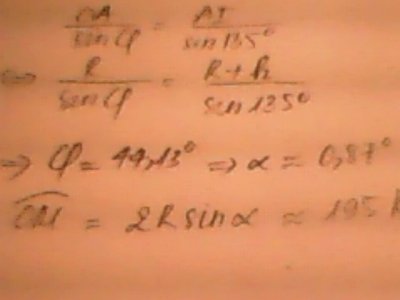 OA / sin φ = OI / sin 135°
⇔ R / sin φ = R + h / sin 135°
⇒ φ = 44,13° ⇒ α = 0,87°
= 2R sin α ≈ 195